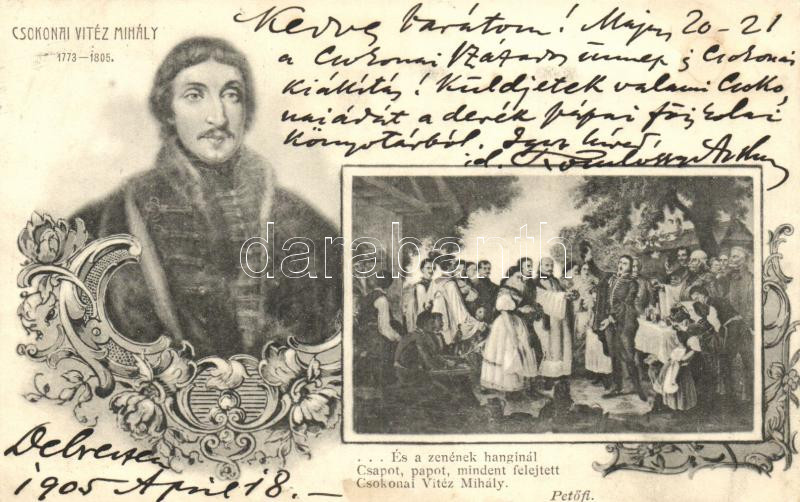 CSOKONAI VITÉZ MIHÁLY
1773—1805.
Kedves barátom! Május 20-21
a Csokonai Százados ünnep s Csokonai
kiállítás! Küldjetek valami Csoko
naiádát a derék pápai főiskolai
könyvtárból. Igaz híved,
darabanth.com
. . . És a zenének hanginál
Csapot, papot, mindent felejtett
Csokonai Vitéz Mihály.
Petőfi.
Debreczen
1905 April 18. —